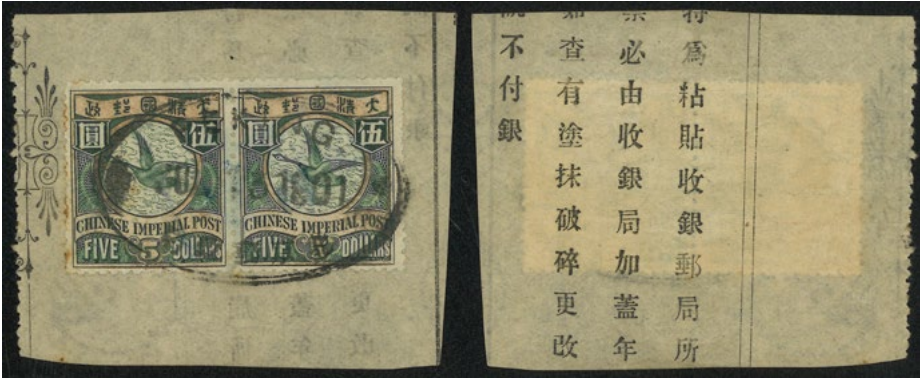 大清國郵政
伍圓
CHINESE IMPERIAL POST
FIVE 5 DOLLARS
大清國郵政
伍圓
CHINESE IMPERIAL POST
FIVE DOLLARS
1901
為粘貼收銀郵局所
必由收銀局加蓋年
查有塗抹破碎更改
不付銀